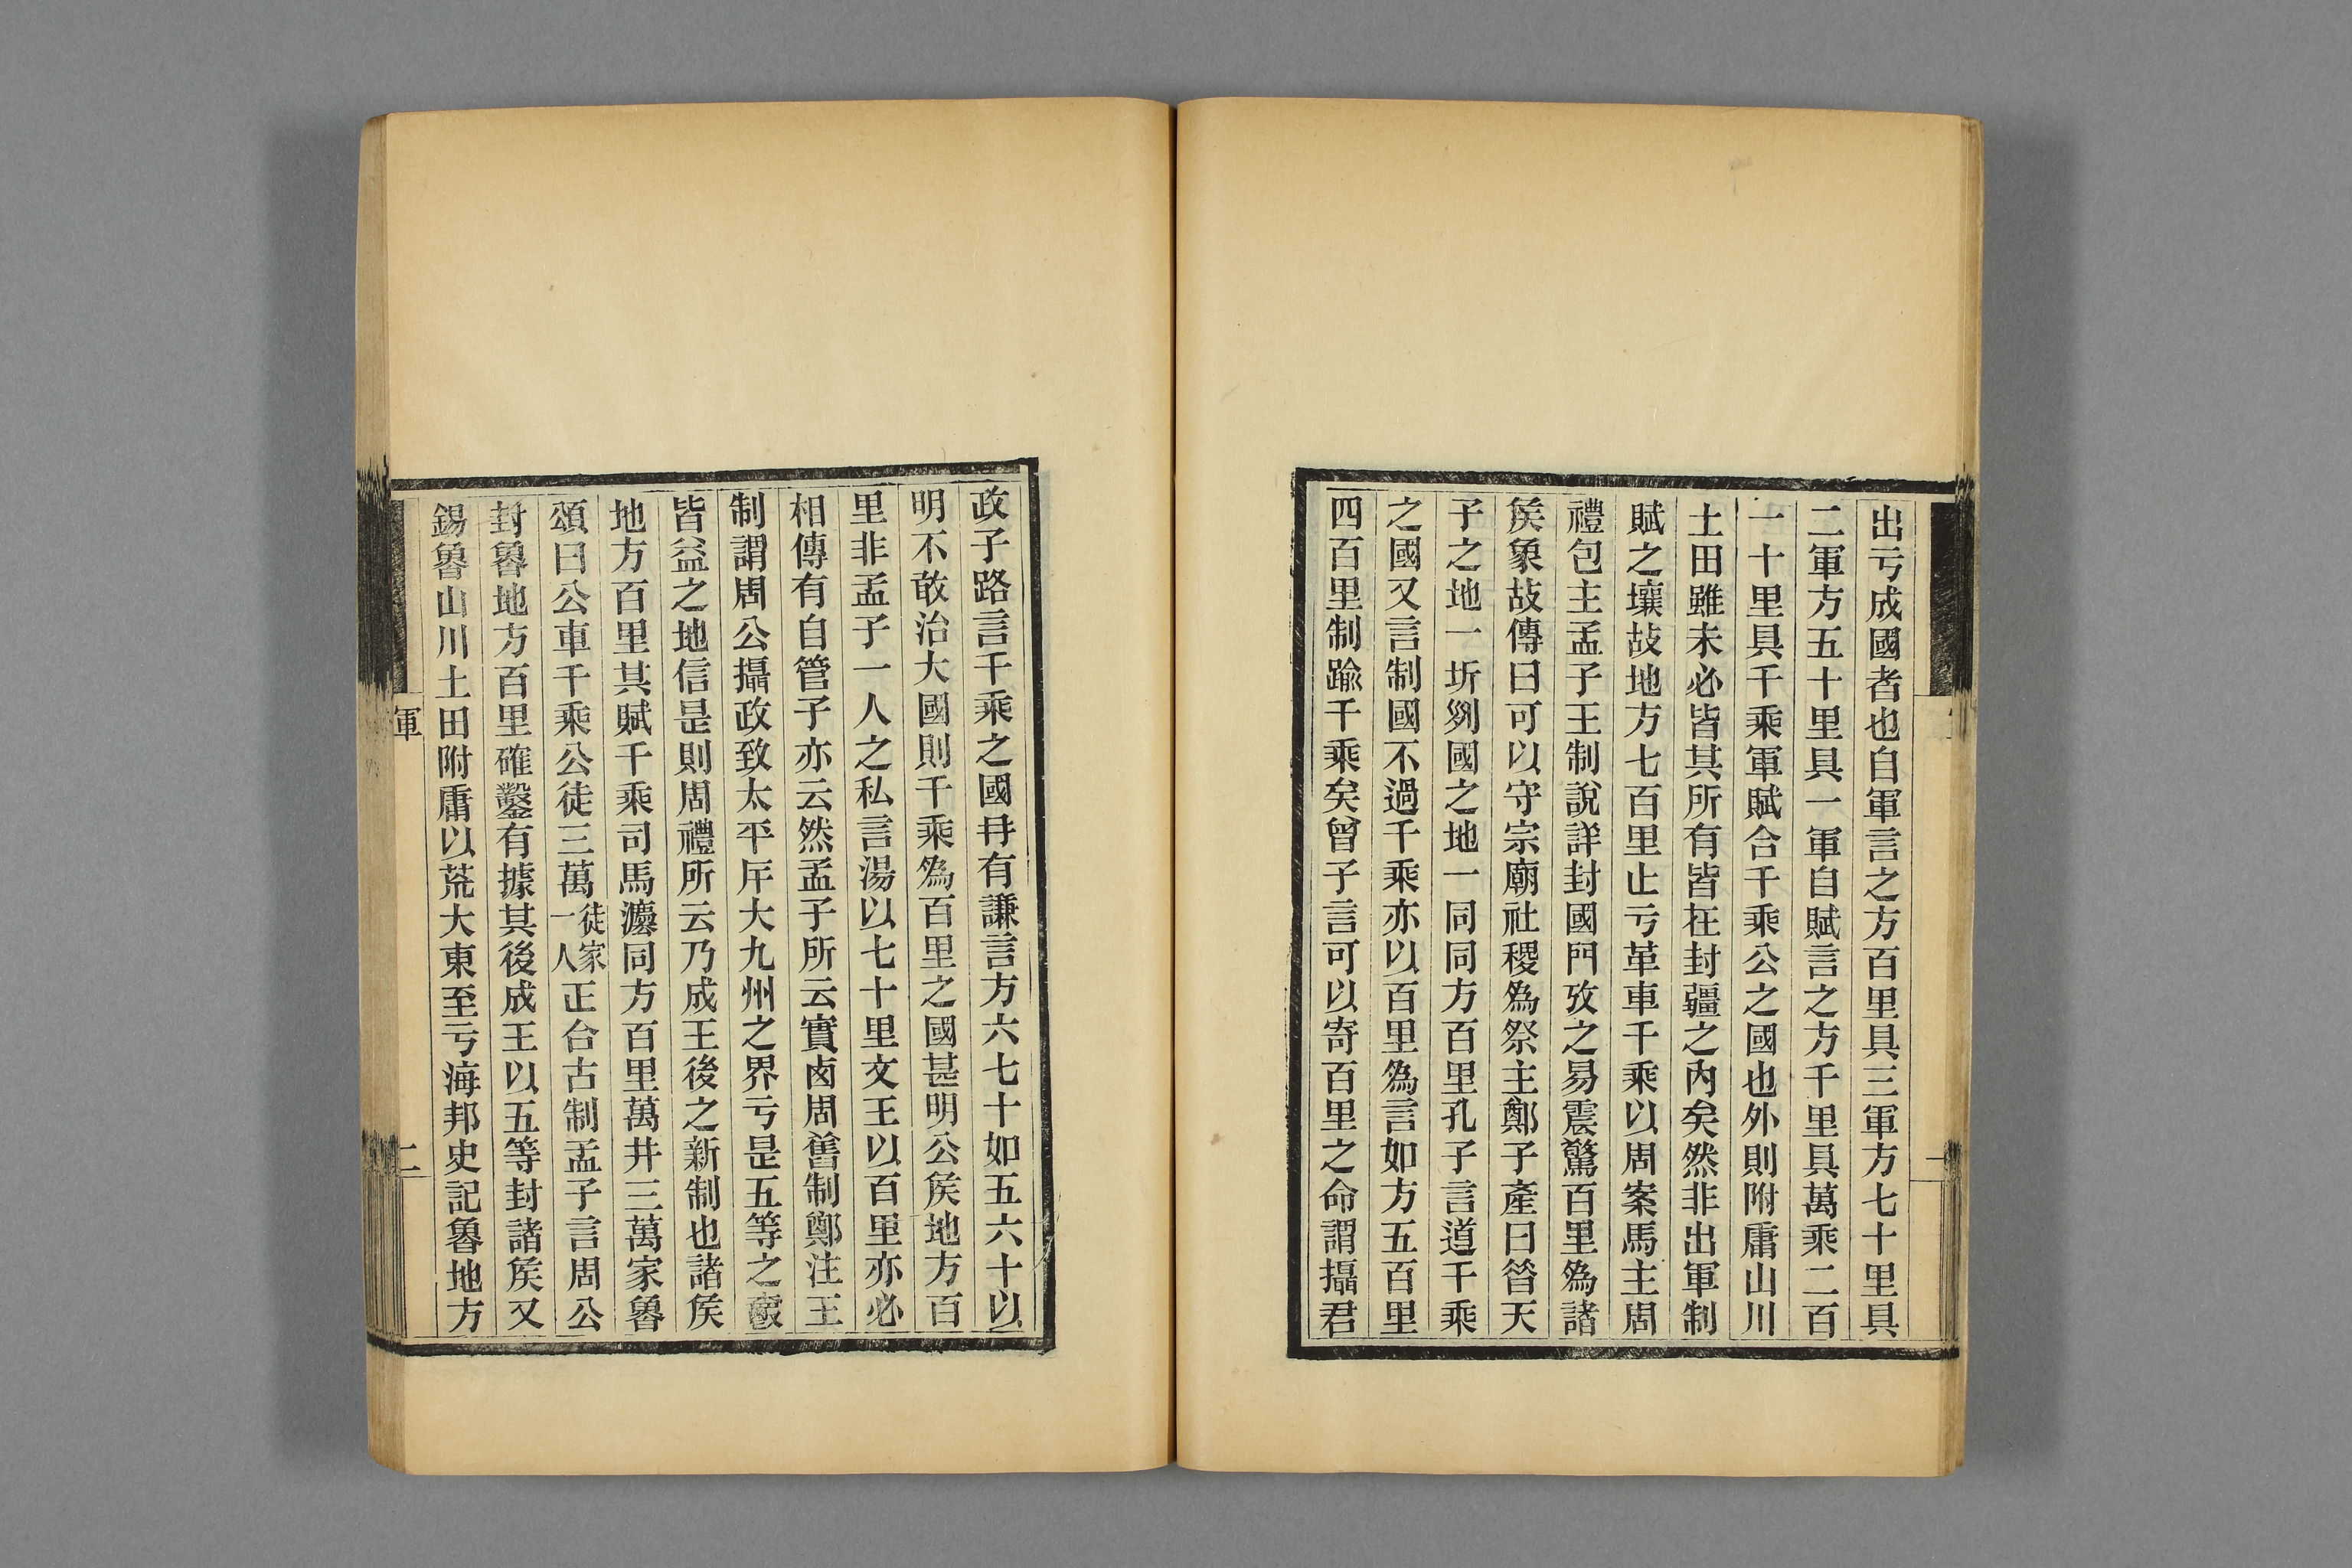 出亏成國者也自軍言之方百里具三軍方七十里具
二軍方五十里具一軍自賦言之方千里具萬乘二百
一十里具千乘軍賦合千乘公之國也外則附庸山川
土田雖未必皆其所有皆在封疆之內矣然非出軍制
賦之壤故地方七百里止亏革車千乘以周案馬主周
禮包主孟子王制說詳封國門攷之易震驚百里為諸
矦象故傳曰可以守宗廟社稷為祭主鄭子產曰昝天
子之地一圻列國之地一同同方百里孔子言道千乘
之國又言制國不過千乘亦以百里為言如方五百里
四百里制踰千乘矣曾子言可以寄百里之命謂攝君
政子路言千乘之國冄有謙言方六七十如五六十以
明不敢治大國則千乘為百里之國甚明公矦地方百
里非孟子一人之私言湯以七十里文王以百里亦必
相傳有自管子亦云然孟子所云實鹵周舊制鄭注王
制謂周公攝政致太平庍大九州之界亏是五等之
皆益之地信是則周禮所云乃成王後之新制也諸矦
地方百里其賦千乘司馬灋同方百里萬井三萬家魯
頌曰公車千乘公徒三萬徒家一人正合古制孟子言周公
封魯地方百里確鑿有據其後成王以五等封諸矦又
錫魯山川土田附庸以荒大東至亏海邦史記魯地方
軍
二